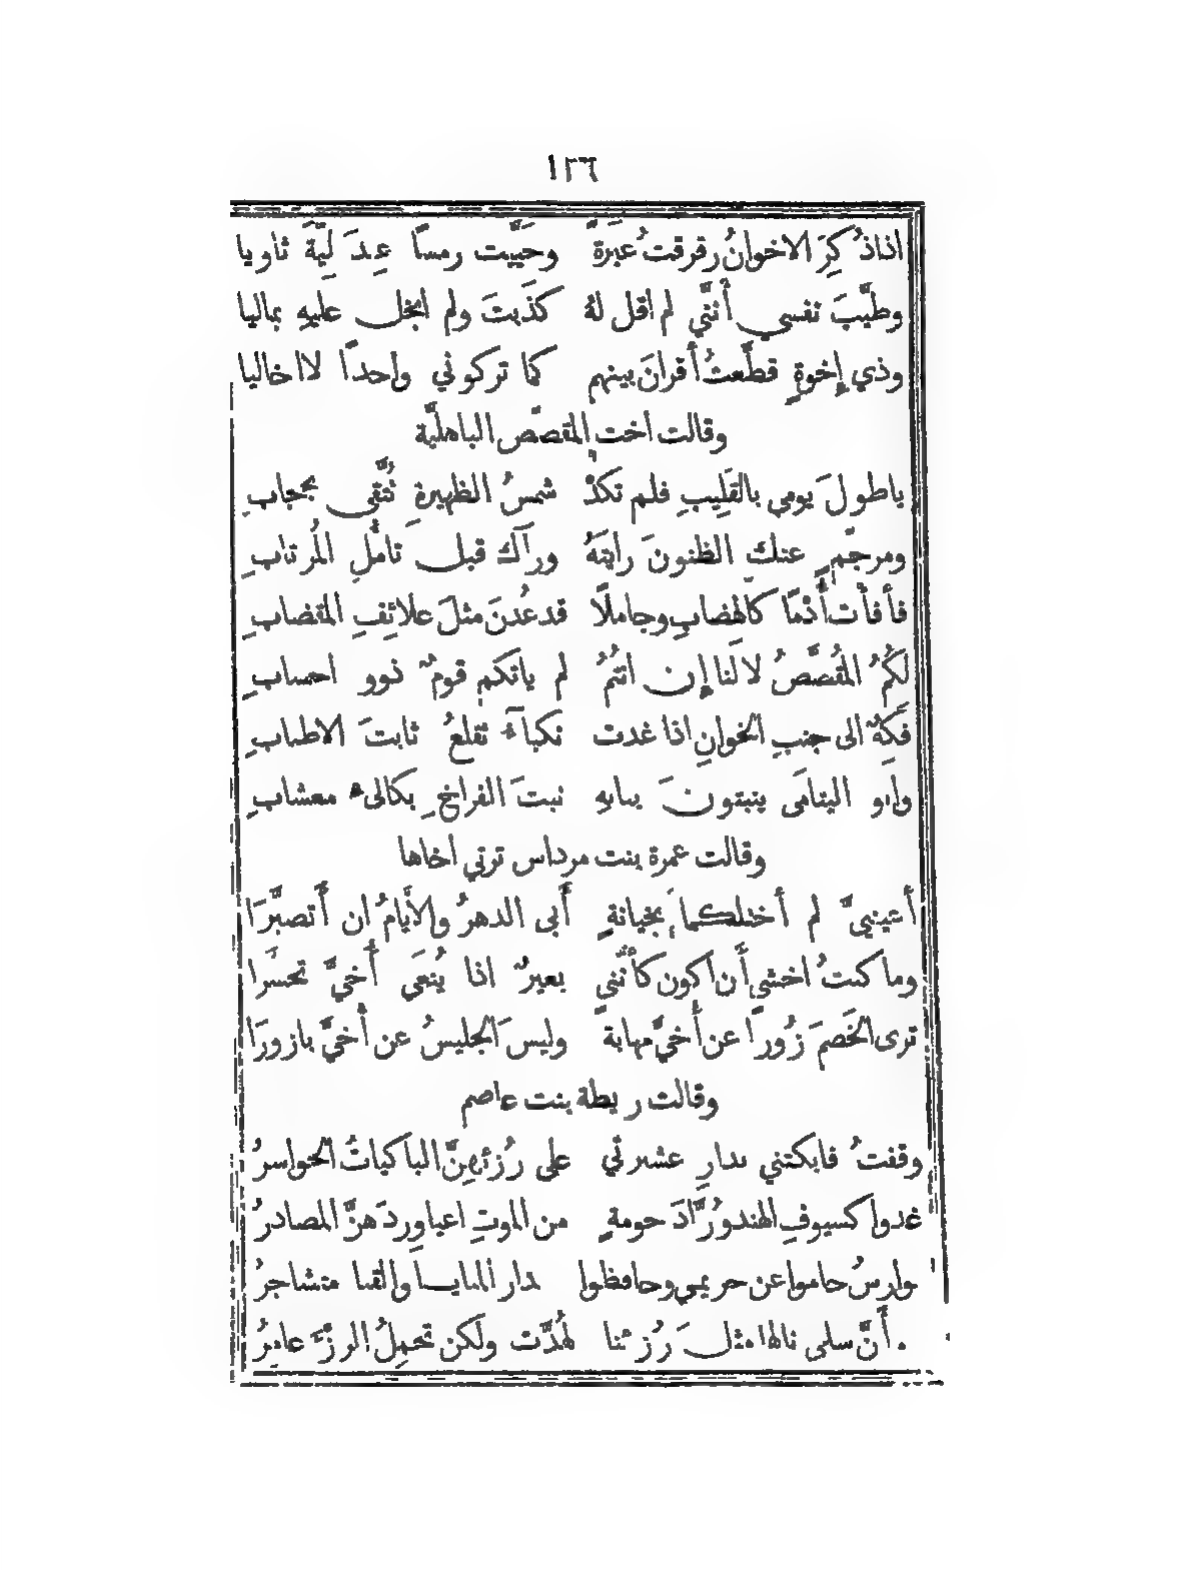 ١٢٦
اذا ذُكِرَ الاخوانُ رقرقتُ عَبرَةً وحَيَّيت رمسًا عِندَ لِيَّةَ ثاويا
وطيَّبَ نفسي أَنَّني لم اقل لهُ كذَبتَ ولم ابخل عليهِ بماليا
وذي إِخوةٍ قطَّعتُ أَقرانَ بينهم كما تركوني واحدًا لا اخا ليا
وقالت اخت المقصّص الباهليَّة
ياطولَ يومي بالقَلِيبِ فلم تكدْ شمسُ الظهيرةِ تُتَّقى بحجابِ
ومرجّمٍ عنكَ الظنونَ رايتهُ ورآكَ قبلَ تأمُّلِ المُرتابِ
فأَفأْتَ أُدْمًا كالهضابِ وجاملًا قد عُدنَ مثلَ علائِفِ المقضابِ
لكُمُ المُقصَّصُ لا لَنا إِن انتُمُ لم ياتكم قومٌ ذوو احسابِ
فَكِهٌ الى جنبِ الخوانِ اذا غدت نكبآءُ تقلعُ ثابتَ الاطنابِ
وابو اليتامَى ينبتونَ ببابهِ نبتَ الفراخِ بكالىءٍ معشابِ
وقالت عمرة بنت مرداس ترثي اخاها
أَعينيَّ لم أَختلكما بخيانةٍ أَبى الدهرُ والأَيامُ ان أَتصبَّرَا
وما كنتُ اخشى أَن اكون كأَنَّني بعيرٌ اذا يُنعَى أُخيَّ تحسَّرا
ترى الخَصمَ زُورًا عن أُخيَّ مهابةً وليسَ الجليسُ عن أُخيَّ بازورَا
وقالت ريطة بنت عاصم
وقفتُ فابكتني بدارِ عشيرتي على رُزئهِنَّ الباكياتُ الحواسرُ
غدوا كسيوفِ الهندِ وُرَّادَ حومةٍ من الموتِ اعيا وِردَهنَّ المصادرُ
فوارسُ حاموا عن حريمي وحافظوا بدار المنايا والقنا متشاجرُ
أَنَّ سلمى نالها مثلَ رُزئنا لهُدَّت ولكن تحمِلُ الرزَّءَ عامِرُ